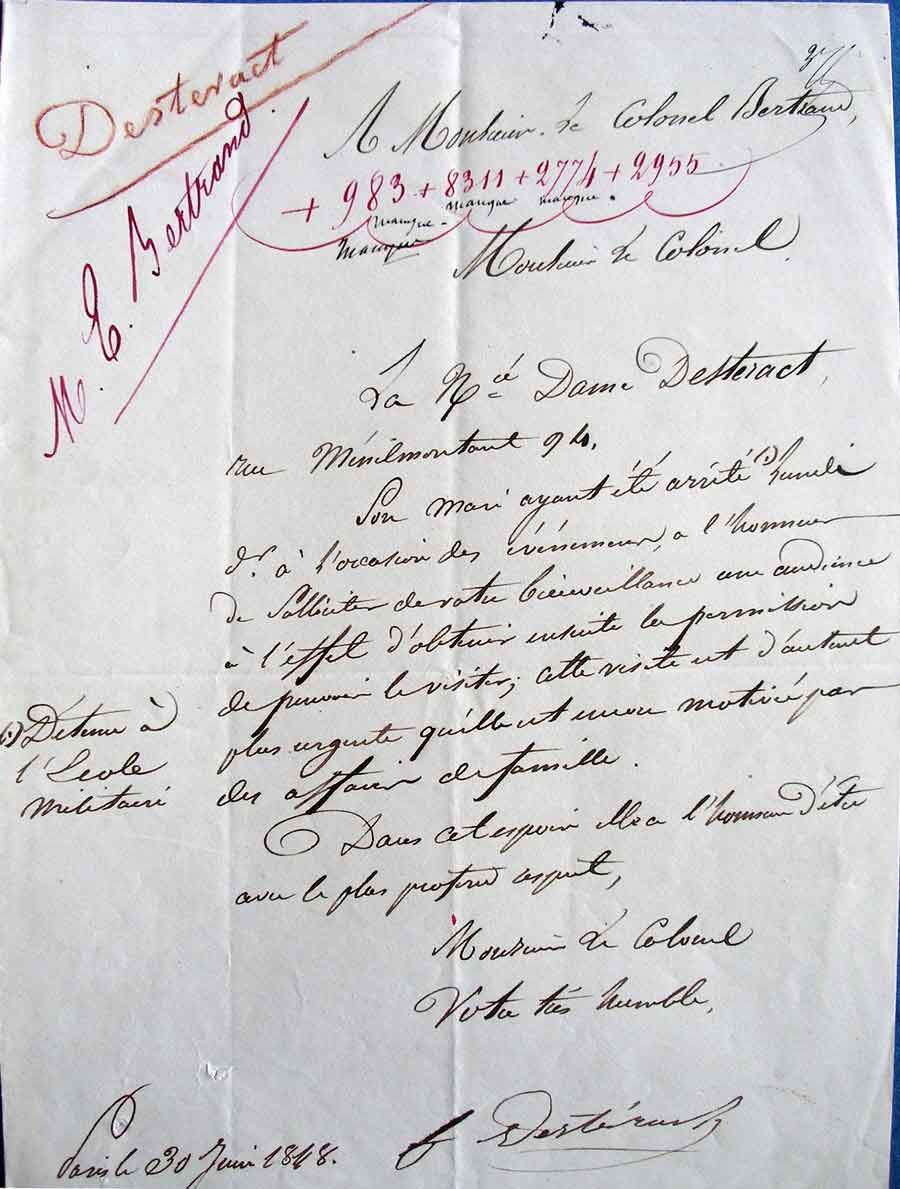 Desteract
M. E. Bertrand
A Monsieur Le Colonel Bertrand,
+ 983 + 8311 + 2774 + 2955
manque manque manque
manque
Monsieur Le Colonel
La Née Dame Desteract,
rue Ménilmontant 94.
Son mari ayant été arrêté (1) Lundi
dr. à l'occasion des événemens, a l'honneur
de solliciter de votre bienveillance une audience
à l'effet d'obtenir ensuite la permission
de pouvoir le visiter; cette visite est d'autant
plus urgente qu'elle est encore motivée par
des affaires de famille.
(1) Détenu à
l'Ecole
militaire
Dans cet espoir elle a l'honneur d'être
avec le plus profond respect,
Monsieur Le Colonel
Votre très humble,
Paris le 30 Juin 1848.
fe Destéract